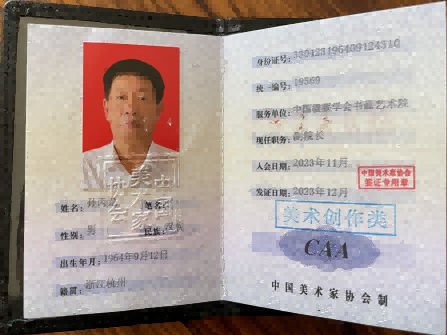 姓名：孙
性别：男
民族：汉族
出生年月：1964年9月12日
籍贯：浙江杭州
中国
美术家
协会
身份证号：
统一编号：19569
服务单位：中国 学会书画艺术院
现任职务：副院长
入会日期：2023年11月
发证日期：2023年12月
中国美术家协会
签证专用章
美术创作类
CAA
中国美术家协会制